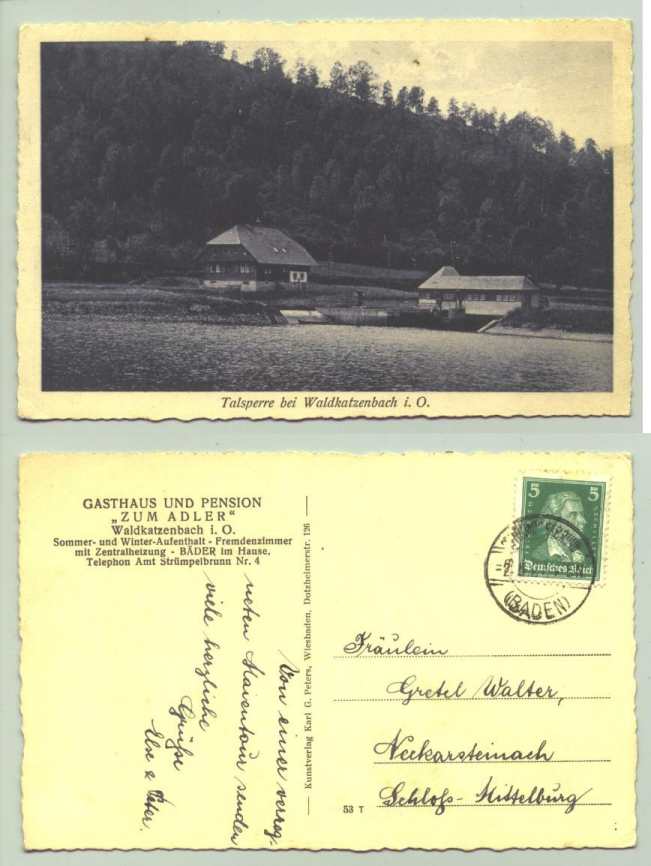 Talsperre bei Waldkatzenbach i. O.
GASTHAUS UND PENSION
„ZUM ADLER“
Waldkatzenbach i. O.
Sommer- und Winter-Aufenthalt - Fremdenzimmer
mit Zentralheizung - BÄDER im Hause.
Telephon Amt Strümpelbrunn Nr. 4
Von einer verreg-
neten Maientour senden
viele herzliche
Grüße
Else & Peter.
Kunstverlag Karl G. Peters, Wiesbaden, Dotzheimerstr. 126
53 T
5 5
Deutsches Reich
(BADEN)
Fräulein
Gretel Walter,
Neckarsteinach
Schloß-Mittelburg